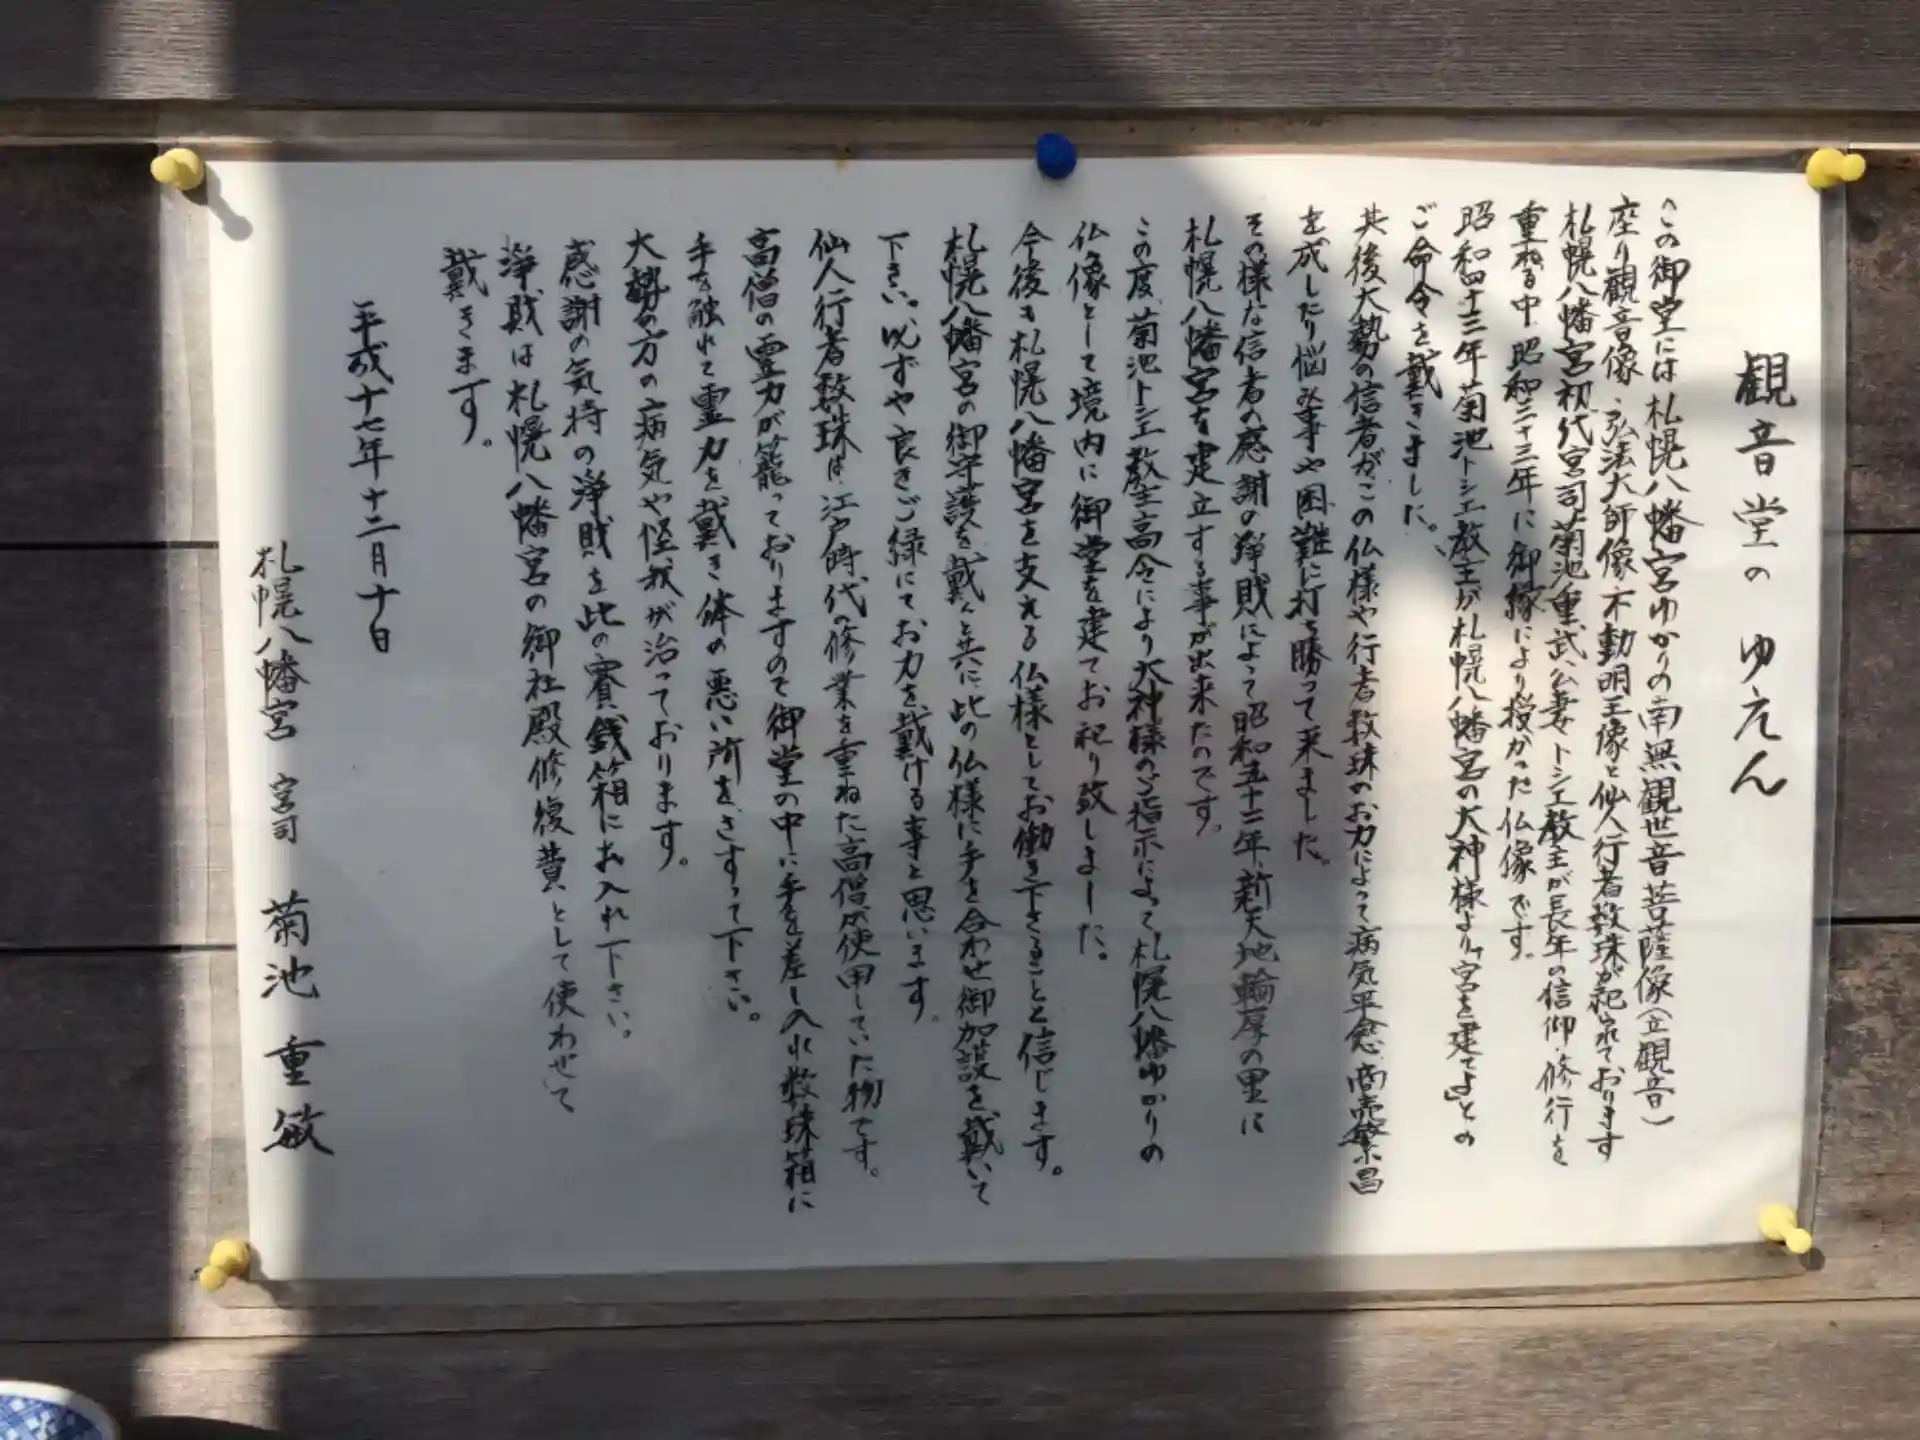 観音堂のゆえん
この御堂には札幌八幡宮ゆかりの南無観世音菩薩像(立観音)
座り観音像、弘法大師像、不動明王像と仙人行者数珠が祀られております
札幌八幡宮初代宮司菊池重武公妻トシエ教主が長年の信仰・修行を
重ねる中、昭和二十三年に御縁により授かった仏像です。
昭和四十三年菊池トシエ教主が札幌八幡宮の大神様より「宮を建てよ」との
ご命令を戴きました。
其後大勢の信者がこの仏様や行者数珠のお力によって病気平愈、商売繁昌
を成したり悩み事や困難に打ち勝って来ました。
その様な信者の感謝の浄財によって昭和五十二年、新天地輪厚の里に
札幌八幡宮を建立する事が出来たのです。
この度、菊池トシエ教主高令により大神様のご指示によって札幌八幡ゆかりの
仏像として境内に御堂を建てお祀り致しました。
今後も札幌八幡宮を支える仏様としてお働き下さることと信じます。
札幌八幡宮の御守護を戴くと共に、此の仏様に手を合わせ御加護を戴いて
下さい。必ずや良きご縁にてお力を戴ける事と思います。
仙人行者数珠は、江戸時代の修業を重ねた高僧が使用していた物です。
高僧の霊力が籠っておりますので御堂の中に手を差し入れ数珠箱に
手を触れて霊力を戴き体の悪い所を、さすって下さい。
大勢の方の病気や怪我が治っております。
感謝の気持の浄財を此の賽銭箱にお入れ下さい。
浄財は札幌八幡宮の御社殿修復費として使わせて
戴きます。
平成十七年十二月十日
札幌八幡宮 宮司 菊池重敏